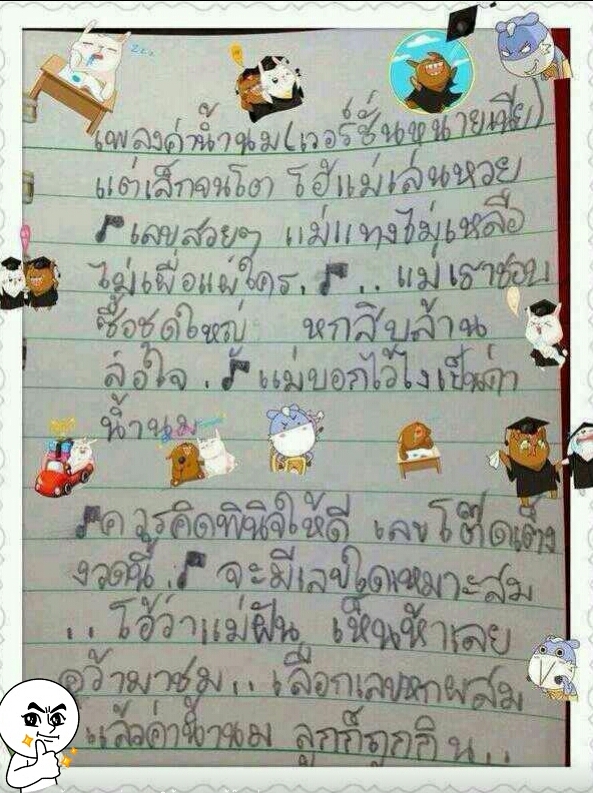 เพลงค่าน้ำนม(เวอร์ชั่นหนายเนีย)
แต่เล็กจนโต โอ้แม่เล่นหวย
เลขสวยๆ แม่แทงไม่เหลือ
ไม่เผื่อแผ่ใคร.. แม่เราชอบ
ซื้อชุดใหญ่ หกสิบล้าน
ล่อใจ. แม่บอกไว้ไงเป็นค่า
น้ำนม
ควรคิดพินิจให้ดี เลขโต๊ดเต็ง
งวดนี้. จะมีเลขใดเหมาะสม
..โอ้ว่าแม่ฝัน เห็นห้าเลย
คว้ามาชม.. เลือกเลขหกผสม
แล้วค่าน้ำนม ลูกก็ถูกกิน..